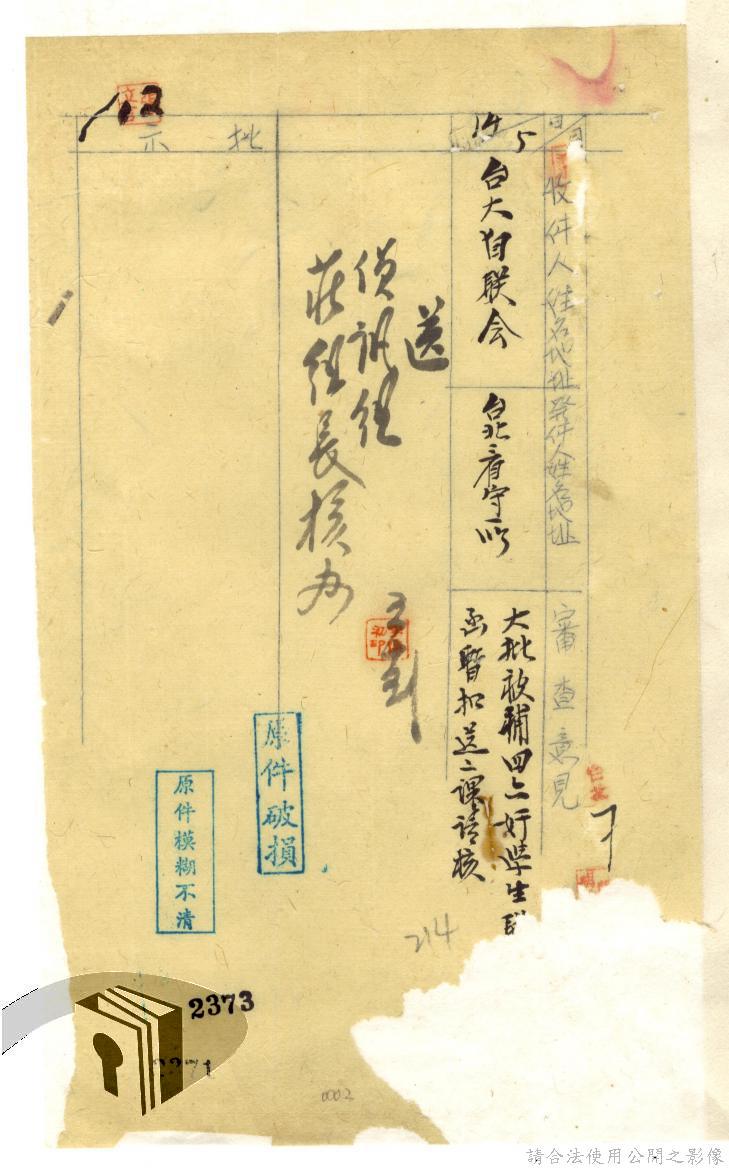 月 日
收件人姓名地址
發件人姓名地址
審查意見
5
14
台大自联会
台北看守所
大批被補四六奸學生
函暫扣送二課請核
送
偵訊組
莊組長核办
批示
原件破損
原件模糊不清
214
2373
0002
請合法使用公開之影像